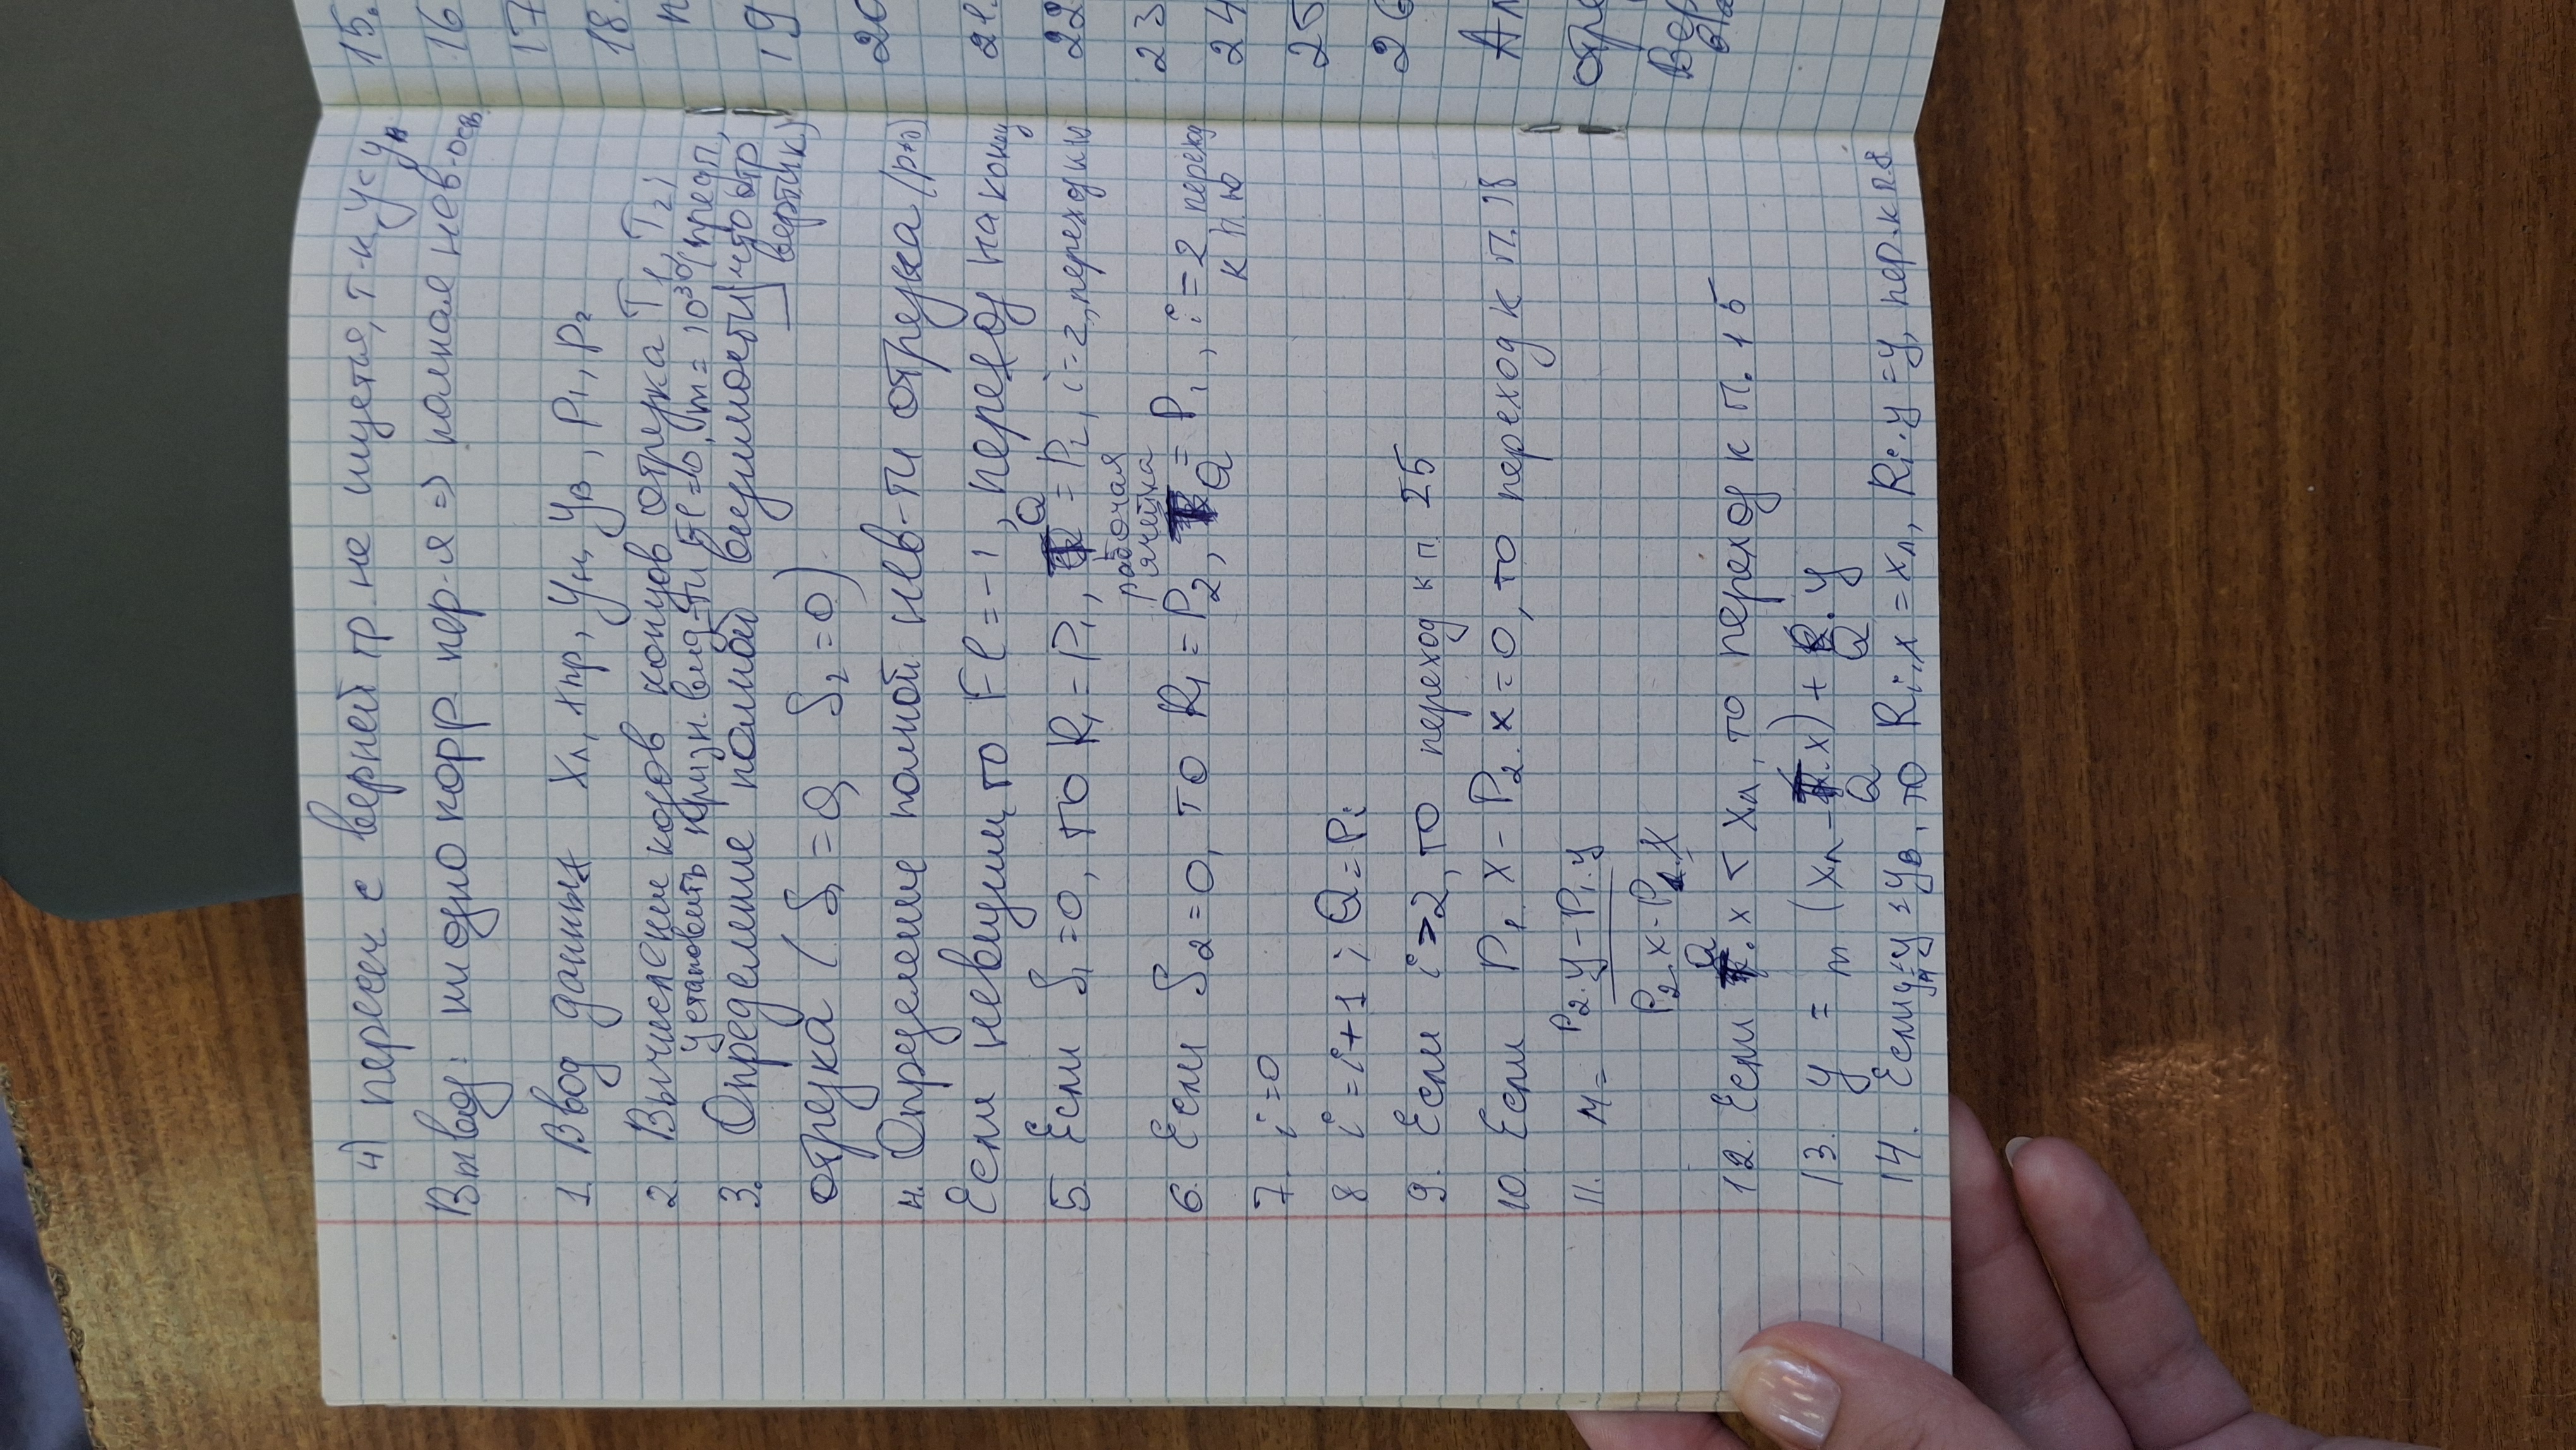 4) пересеч с верхней гр. не ищется, т-к y<yв
Вывод: ни одно корр пер-я => полная нев-ость
1. Ввод данных xл, xпр, yн, yв, p1, p2
2. Вычисление кодов концов отрезка T1, T2;
установить призн. вид-ти Fl=0, m=10^30 (предп,
что отр
вертик.)
3. Определение полной видимости
отрезка (S1=0, S2=0)
4. Определение полной нев-ти отрезка (p≠0)
Если невидим, то Fl=-1, переход на конец
5. Если S1=0, то R1=P1, Q=P2, i=2, переход к 10
рабочая
ячейка
6. Если S2=0, то R1=P2, Q=P1, i=2 переход
к п. 10
7. i=0
8 i=i+1; Q=Pi
9. Если i>2, то переход к п. 25
10. Если P1.x-P2.x=0, то переход к п. 18
11. M= P2.y-P1.y
P2.x-P1.x
12. Если Q.x < xл, то переход к п. 15
13. y = m (xл-Q.x)+Q.y
14. Если yн≤y≤yв, то Ri.x=xл, Ri.y=y, пер. к п.8
15.
16
17
18.
п
19
20
21.
22
23
24
25
26
Ал
отре
Вер